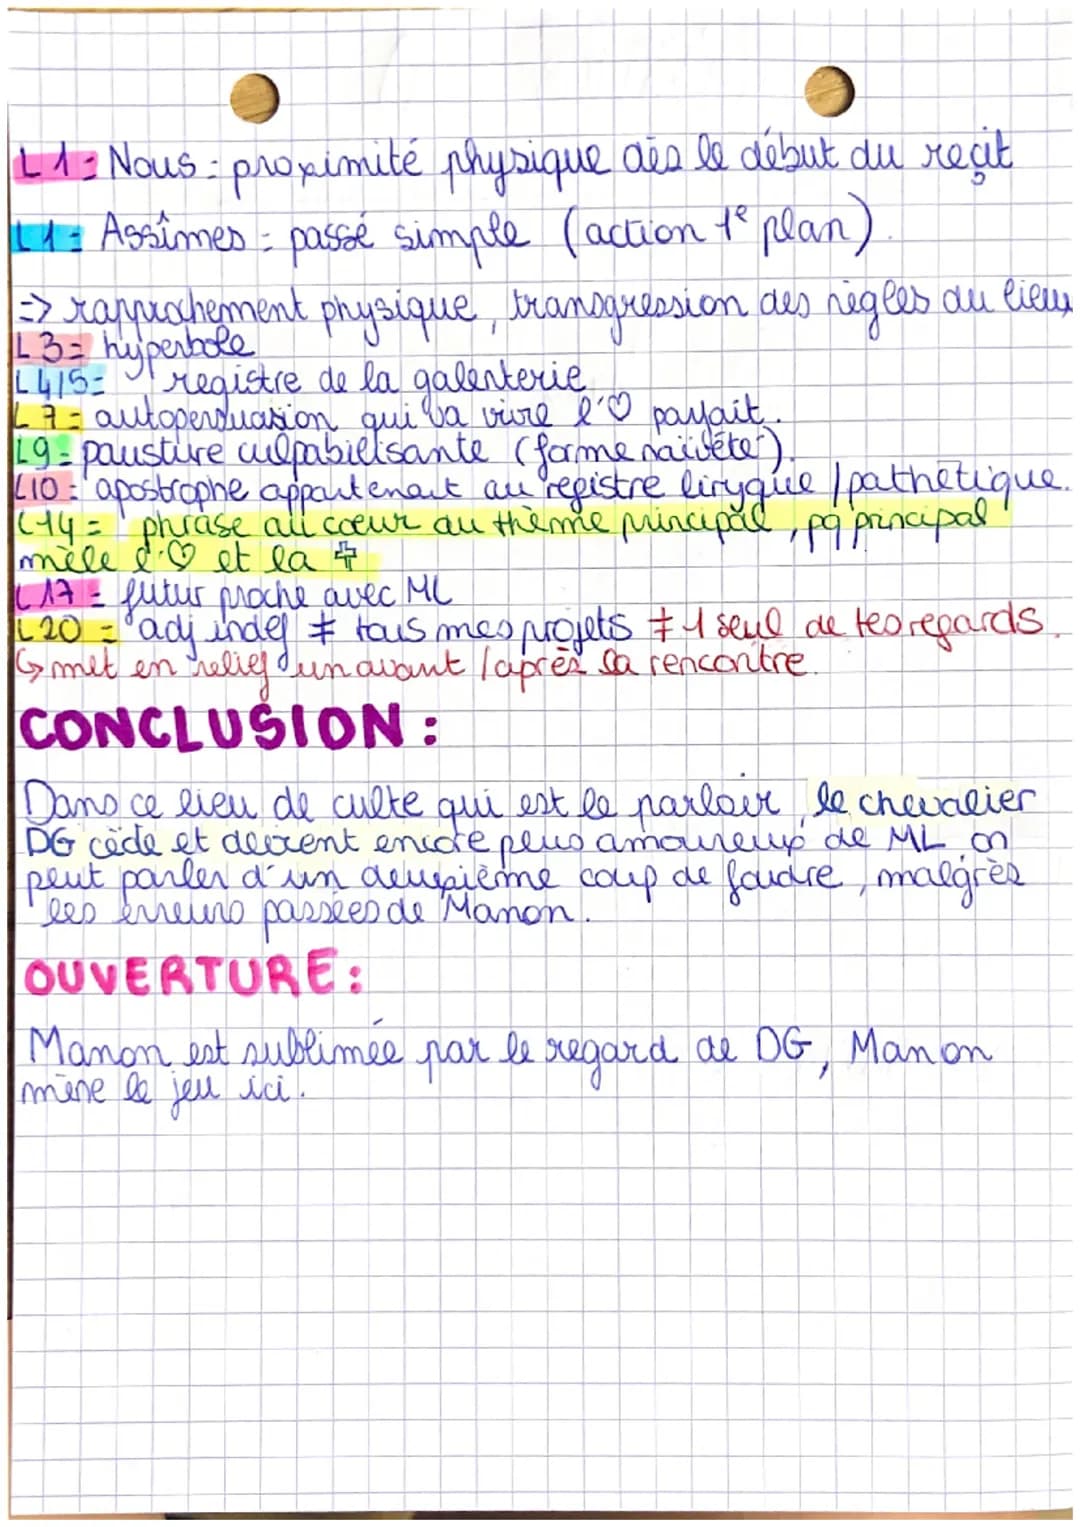 L1 = Nous = proximité physique dès le début du reçit
L1 = Assîmes = passé simple (action 1e plan).
=> rapprochement physique, transgression des règles du lieu
L3 = hyperbole
L4/5 = registre de la galenterie
L7 = autopersuasion qui va vivre l'♡ parfait.
L9 = pausture culpabilisante (forme naïvété).
L10 = apostrophe appartenant au registre liryque / pathétique.
L14 = phrase au cœur du thème principal, pq principal
mêle l'♡ et la ✞
L17 = futur proche avec ML
L20 = adj indef ≠ tous mes projets ≠ 1 seul de tes regards.
↳ met en relief un avant / après sa rencontre.
CONCLUSION :
Dans ce lieu de culte qui est le parloir, le chevalier
DG cède et devient encore plus amoureux de ML, on
peut parler d'un deuxième coup de foudre, malgrès
les erreurs passées de Manon.
OUVERTURE :
Manon est sublimée par le regard de DG, Manon
mène le jeu ici.